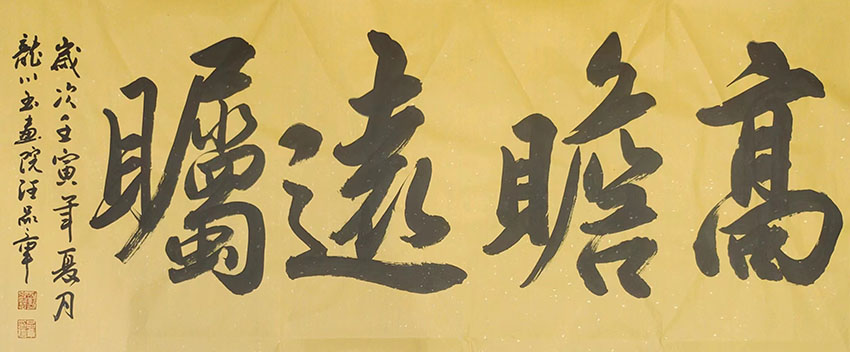 高瞻遠矚
歲次壬寅年夏月
龍川書畫院汪品章